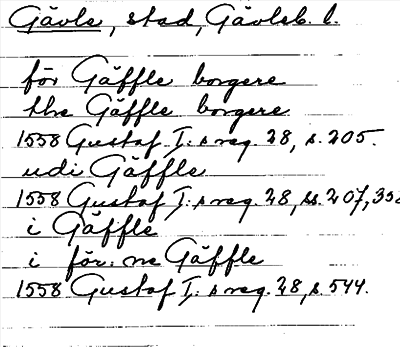 Gävle, stad, Gävleb. l.
för Gäffle borgere
the Gäffle borgere
1558 Gustaf I:s reg. 28, s. 205.
udi Gäffle
1558 Gustaf I:s reg. 28, ss. 207, 35
i Gäffle
i för:ne Gäffle
1558 Gustaf I:s reg. 28, s. 544.